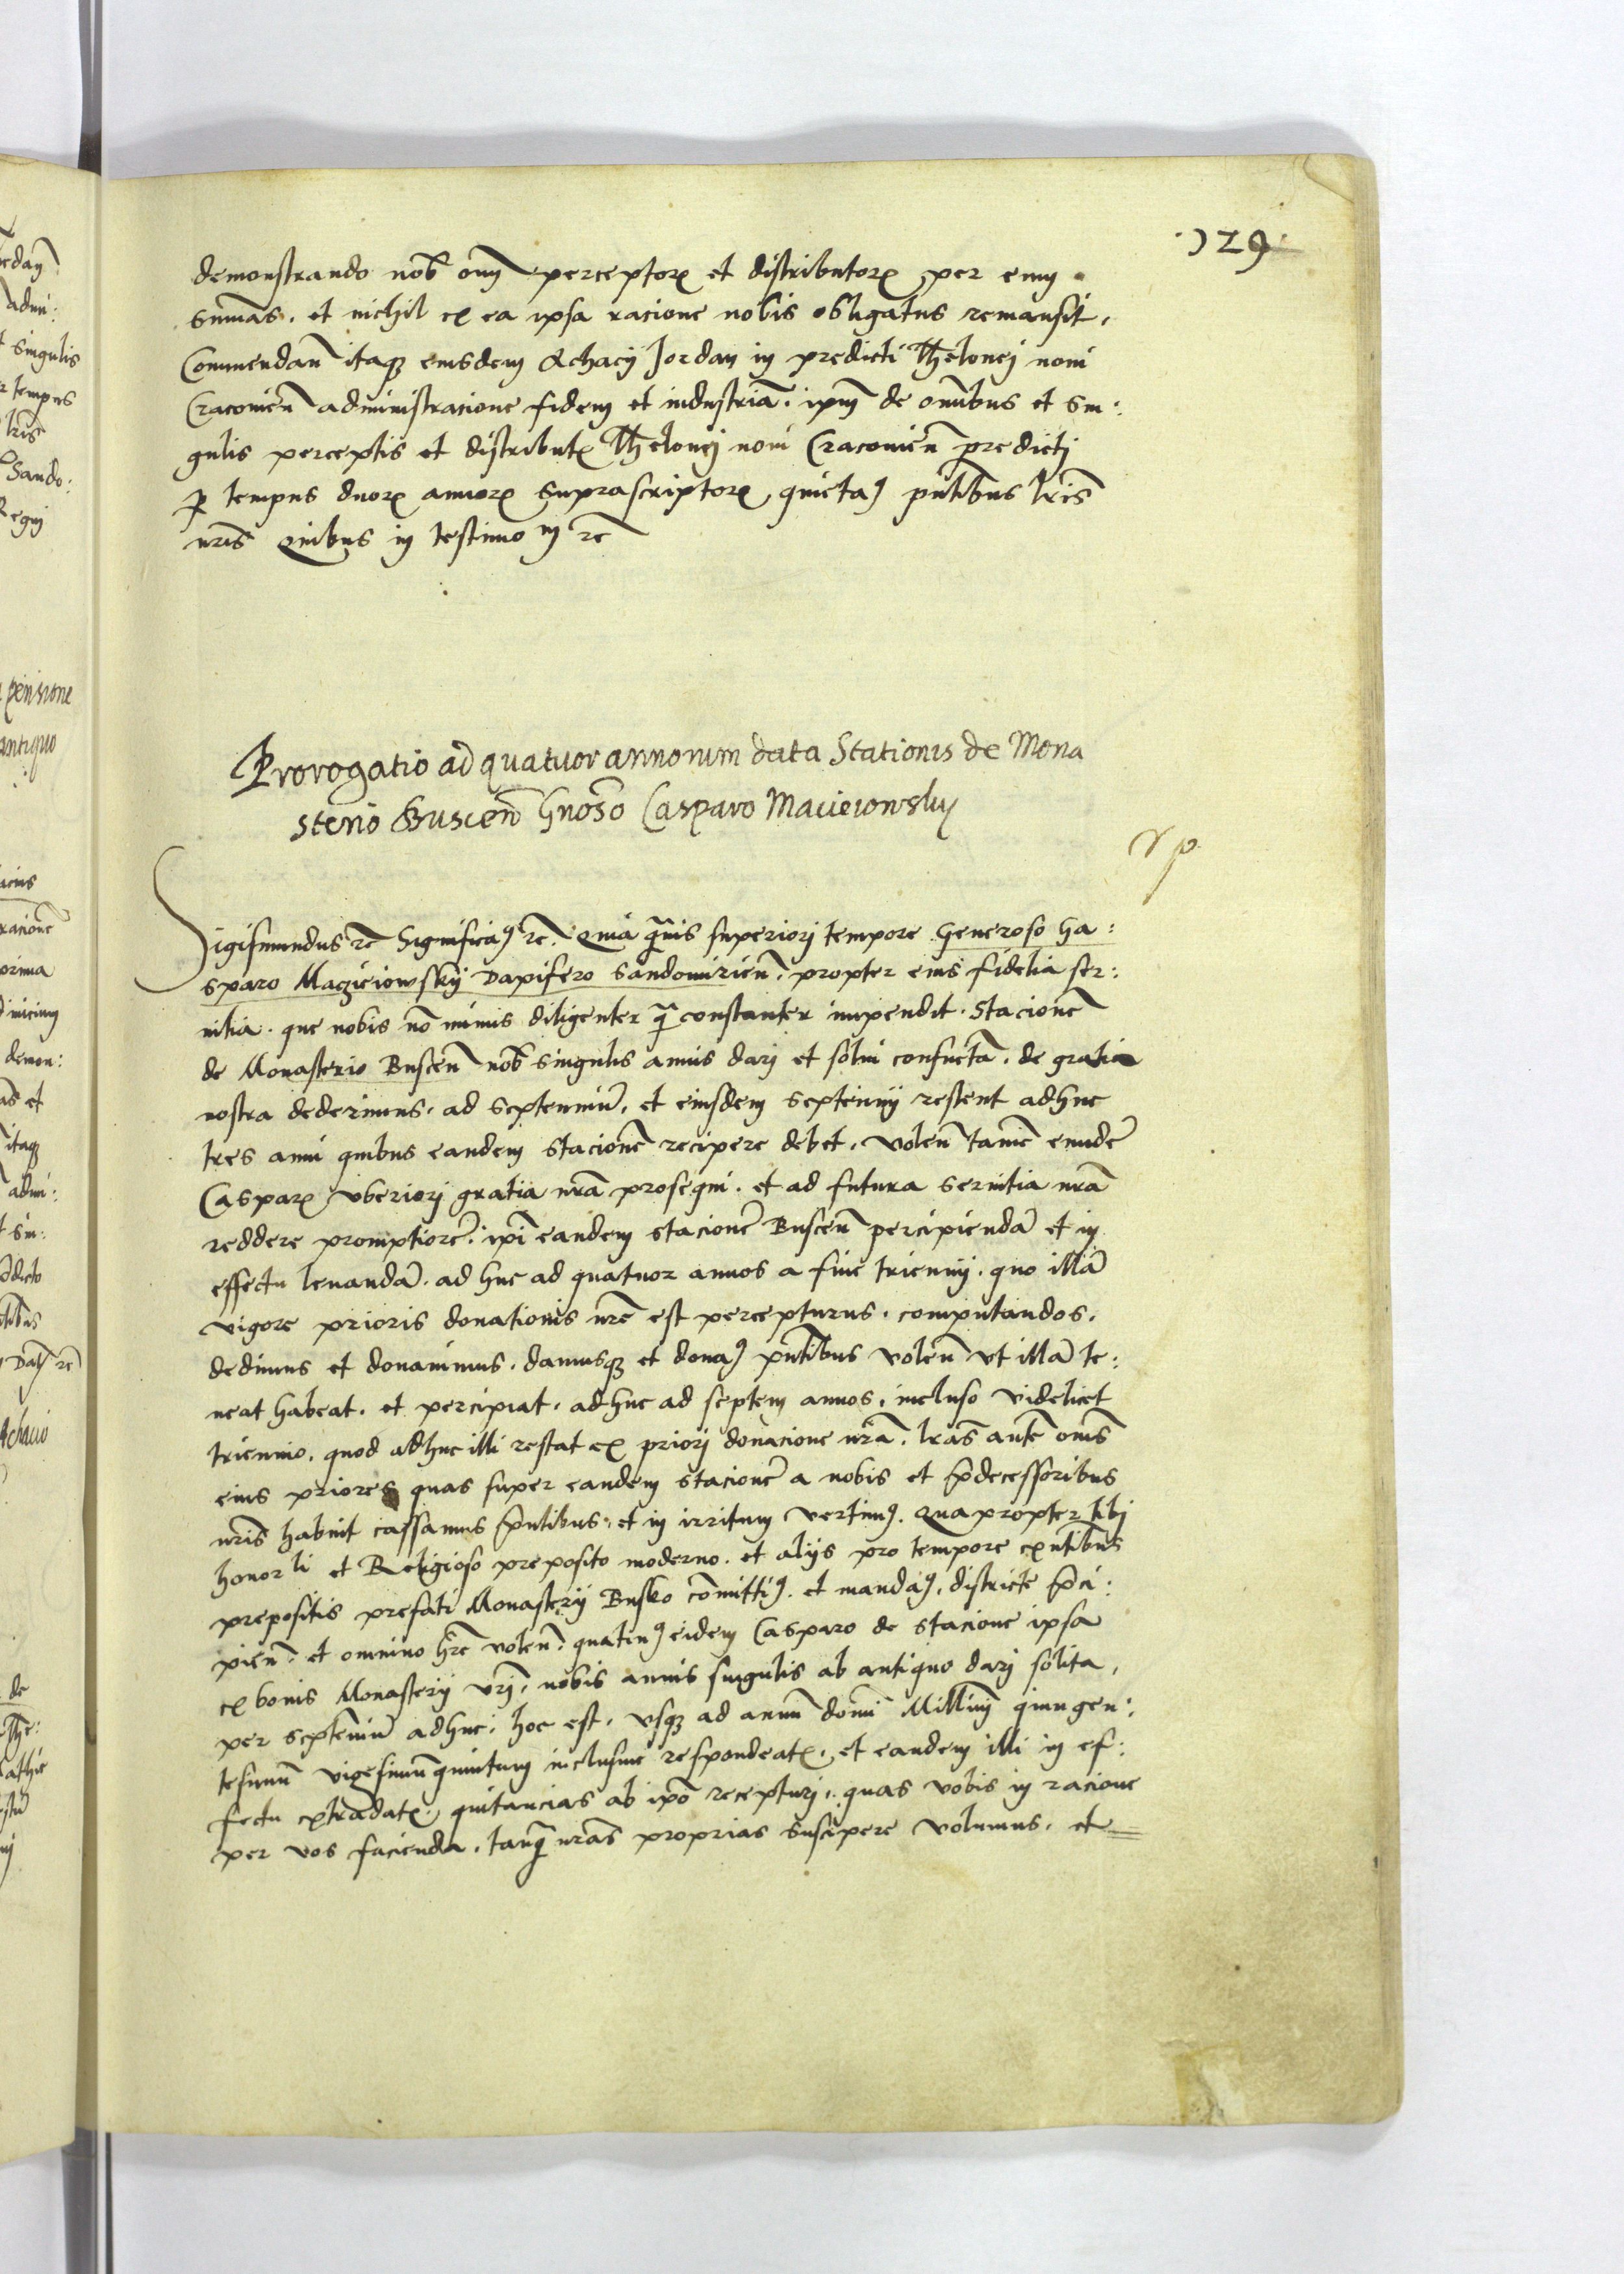 ·129·
demonstrando nob̃ om̃ perceptorꝝ et distributorꝝ per eum
summas. et nichil ex ea ipsa racione nobis obligatus remansit.
Commendan̄ itaqꝫ eiusdem Achacij Jordan in predicti Thelonej noui
Cracouien̄ administracione fidem et industriā. ipm̄ de omībus et sin:
gulis perceptis et distributꝭ Thelonej noui Cracouien̄ predictj
ꝑ tempus duorꝝ annorꝝ suprascriptorꝝ quietaꝯ pn̄tibus lr̄is
nr̄is Quibus in testimoⁿ ꝛc̄
Prorogatio ad quatuor annorum data Stationis de Mona
sterio Buscen̄ Gn̄oso Casparo Macieiowskij
Sigismundus ꝛc̄ Significaꝯ ꝛc̄. Quia qͣ̄uis superiorj tempore Generoso Ca:
sparo Macziciowskij Dapifero Sandomirien̄. propter eius fidelia ser:
uitia. que nobis nō minus diligenter qͣ̄ constanter impendit. Stacionē
de Monasterio Buscen̄ nob̃ singulis annis darj et solui consuetā. de gratia
nostra dederimus. ad septenniū. et eiusdem septennij restent adhuc
tres anni quibus eandem stacionē recipere debet. Volen̄ tamē eundē
Casparꝝ vberiorj gratia nr̄a prosequi. et ad futura seruitia nr̄a
reddere promptiorē. ipī eandem stacionē Buscen̄ percipiendā et in
effectu leuandā. ad huc ad quatuor annos a fine triennij. quo illā
vigore prioris donationis nr̄e est percepturus. computandos.
dedimus et donauimus. damusqꝫ et donaꝯ pn̄tibus volen̄ vt illā te:
neat habeat. et percipiat. adhuc ad septem annos. incluso videlicet
triennio. quod adhuc illi restat ex priorj donacione nr̄a. lr̄as autē om̄s
eius priores quas super eandem stacionē a nobis et p̄decessoribus
nr̄is habuit cassamus p̄ntibus. et in irritum vertimꝯ. Quapropter tibj
honorli et Religioso preposito moderno. et alijs pro tempore exn̄tibus
prepositis prefati Monasterij Busko cōmittiꝯ. et mandaꝯ. districte p̄ci:
pien̄. et omnino hr̄e volen̄. quatinꝯ eidem Casparo de stacione ipsa
ex bonis Monasterij vr̄j. nobis annis singulis ab antiquo darj solita.
per septenniū adhuc. hoc est. vsqꝫ ad annū domī Millimū quingen:
tesimū vigesimū quintum inclusiue respondeatꝭ. et eandem illi in ef:
fectu extradatꝭ. quitancias ab ipō recepturj. quas vobis in racione
per vos facienda. tanqͣ̄ nr̄as proprias suscipere volumus. et